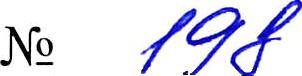 № 198